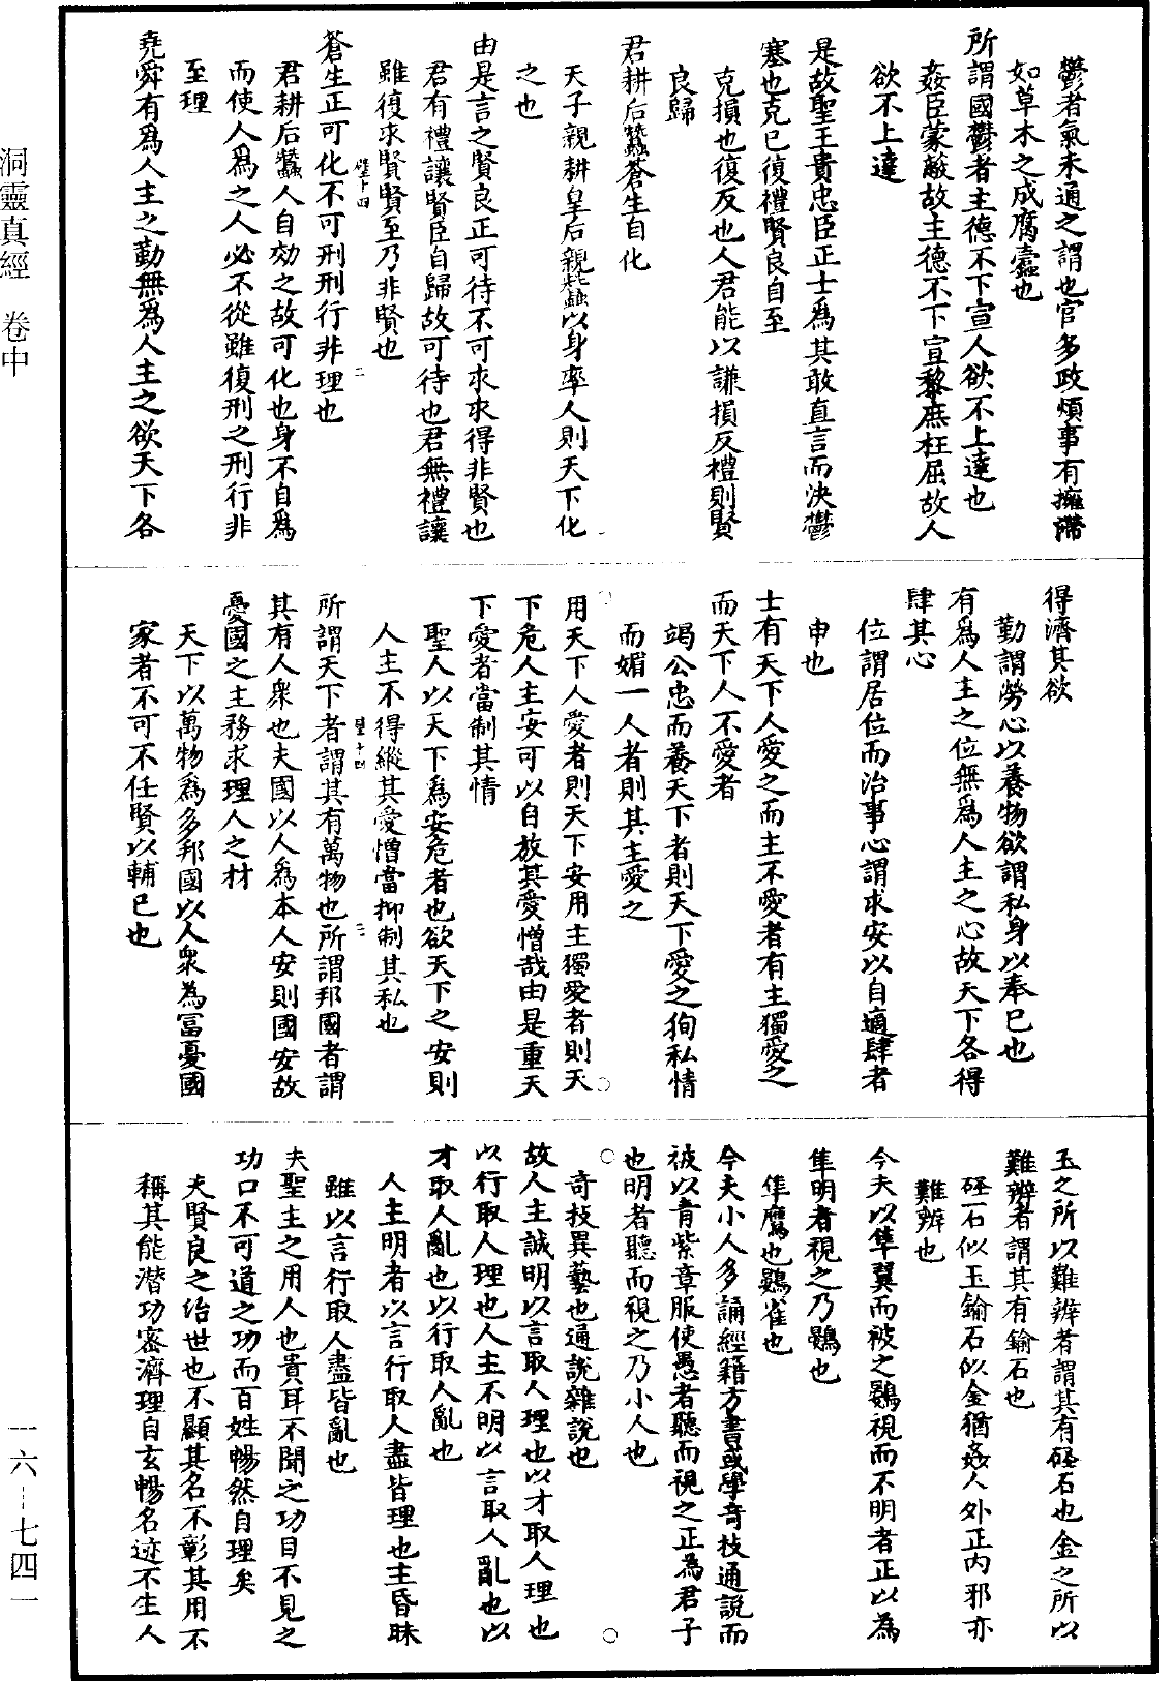 鬱者氣未通之謂也官多政煩事有擁滯
如草木之成腐蠹也
所謂國鬱者主德不下宣人欲不上達也
姦臣蒙蔽故主德不下宣黎庶枉屈故人
欲不上達
是故聖王貴忠臣正士爲其敢直言而決鬱
塞也克已復禮賢良自至
克損也復反也人君能以謙損反禮則賢
良歸
君耕后蠶蒼生自化
天子親耕皇后親蠶以身率人則天下化
之也
由是言之賢良正可待不可求求得非賢也
君有禮讓賢臣自歸故可待也君無禮讓
雖復求賢賢至乃非賢也
壁十四
二
蒼生正可化不可刑刑行非理也
君耕后蠶人自効之故可化也身不自爲
而使人爲之人必不從雖復刑之刑行非
至理
堯舜有爲人主之勤無爲人主之欲天下各
得濟其欲
勤謂勞心以養物欲謂私身以奉已也
有爲人主之位無爲人主之心故天下各得
肆其心
位謂居位而治事心謂求安以自適肆者
申也
士有天下人愛之而主不愛者有主獨愛之
而天下人不愛者
竭公忠而養天下者則天下愛之狥私情
而媚一人者則其主愛之
用天下人愛者則天下安用主獨愛者則天
下危人主安可以自放其愛憎哉由是重天
下愛者當制其情
聖人以天下爲安危者也欲天下之安則
人主不得縱其愛憎當抑制其私也
壁十四
三
所謂天下者謂其有萬物也所謂邦國者謂
其有人衆也夫國以人爲本人安則國安故
憂國之主務求理人之材
天下以萬物爲多邦國以人衆為富憂國
家者不可不任賢以輔已也
玉之所以難辨者謂其有硁石也金之所以
難辨者謂其有鍮石也
硁石似玉鍮石似金猶姦人外正內邪亦
難辨也
今夫以隼翼而被之鷃視而不明者正以為
隼明者視之乃鷃也
隼鷹也鷃雀也
今夫小人多誦經籍方書或學奇技通說而
被以青紫章服使愚者聽而視之正為君子
也明者聽而視之乃小人也
奇技異藝也通說雜說也
故人主誠明以言取人理也以才取人理也
以行取人理也人主不明以言取人亂也以
才取人亂也以行取人亂也
人主明者以言行取人盡皆理也主昏昧
雖以言行取人盡皆亂也
夫聖主之用人也貴耳不聞之功目不見之
功口不可道之功而百姓暢然自理矣
夫賢良之治世也不顯其名不彰其用不
稱其能潛功密濟理自玄暢名迹不生人
洞靈真經　卷中
一六－七四一